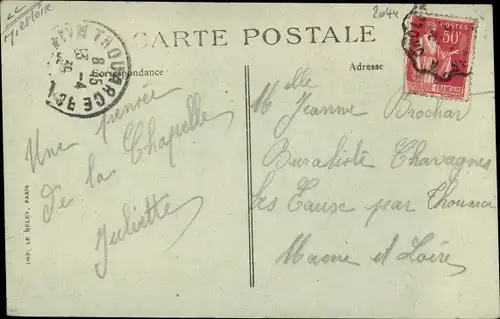 M et Loire
2044
CARTE POSTALE
Correspondance
Adresse
THOUARCE
8·15
13-4
36
POSTES
50c
REPUBLIQUE FRANÇAISE
Une pensée
de la Chapelle
Juliette
Melle
Jeanne Brochar
Buraliste Chavagnes
les Eaux par Thouarcé
Maine et Loire
IMP. LE DELEY, PARIS